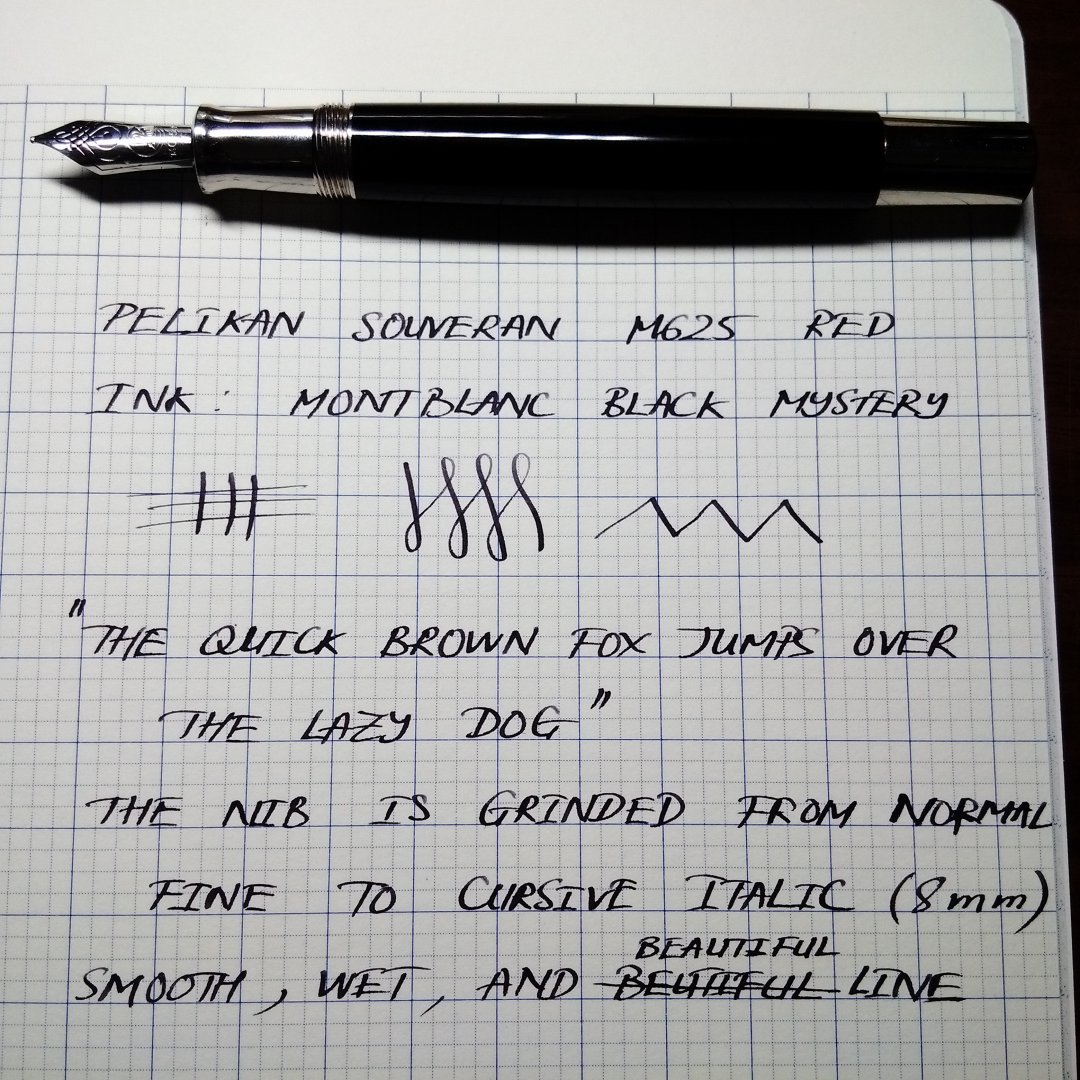 PELIKAN SOUVERAN M625 RED
INK: MONTBLANC BLACK MYSTERY
"THE QUICK BROWN FOX JUMPS OVER
THE LAZY DOG"
THE NIB IS GRINDED FROM NORMAL
FINE TO CURSIVE ITALIC (8mm)
BEAUTIFUL
SMOOTH, WET, AND BEUTIFUL LINE